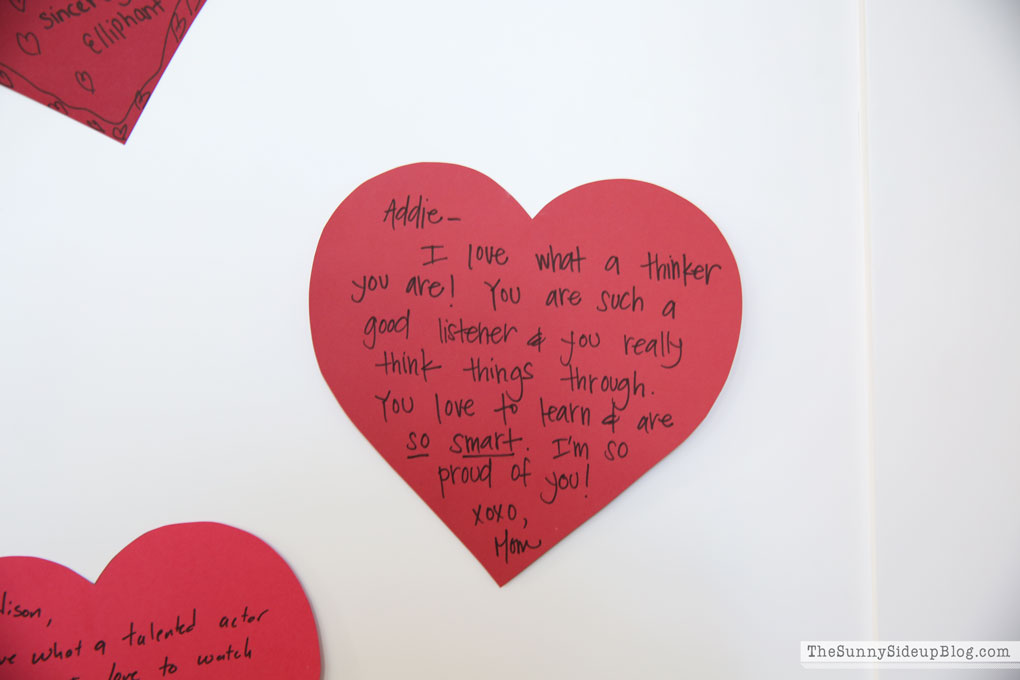 sincer
Elliphant
Addie-
I love what a thinker
you are! You are such a
good listener & you really
think things through.
You love to learn & are
so smart. I'm so
proud of you!
xoxo,
Mom
what a talented actor
love to watch
TheSunnySideupBlog.com